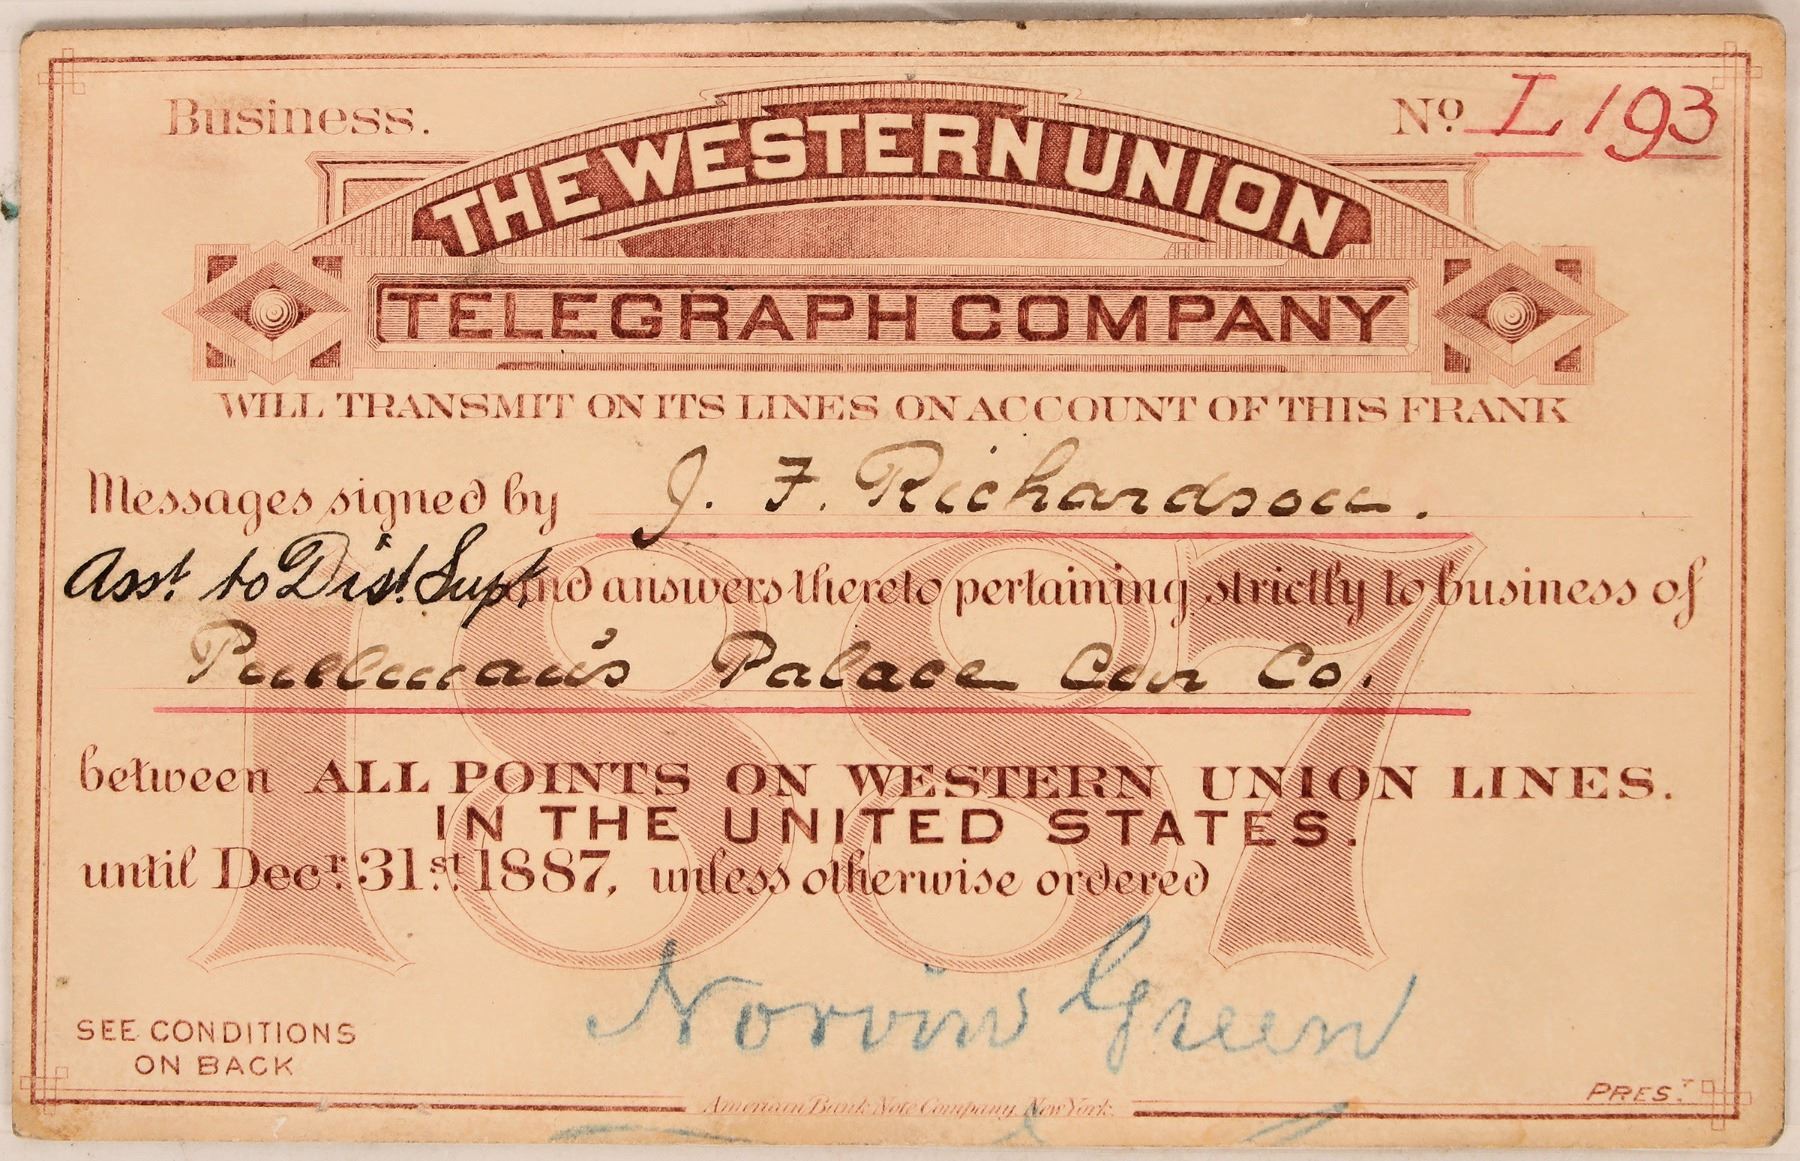 Business.
No. L193
THE WESTERN UNION
TELEGRAPH COMPANY
WILL TRANSMIT ON ITS LINES ON ACCOUNT OF THIS FRANK
Messages signed by J. F. Richardson.
Asst. to Dist. Supt and answers thereto pertaining strictly to business of
Pullman's Palace Car Co.
between ALL POINTS ON WESTERN UNION LINES.
IN THE UNITED STATES.
until Decr. 31st. 1887, unless otherwise ordered
1887
Norvin Green
SEE CONDITIONS
ON BACK
PREST.
American Bank Note Company, New York.